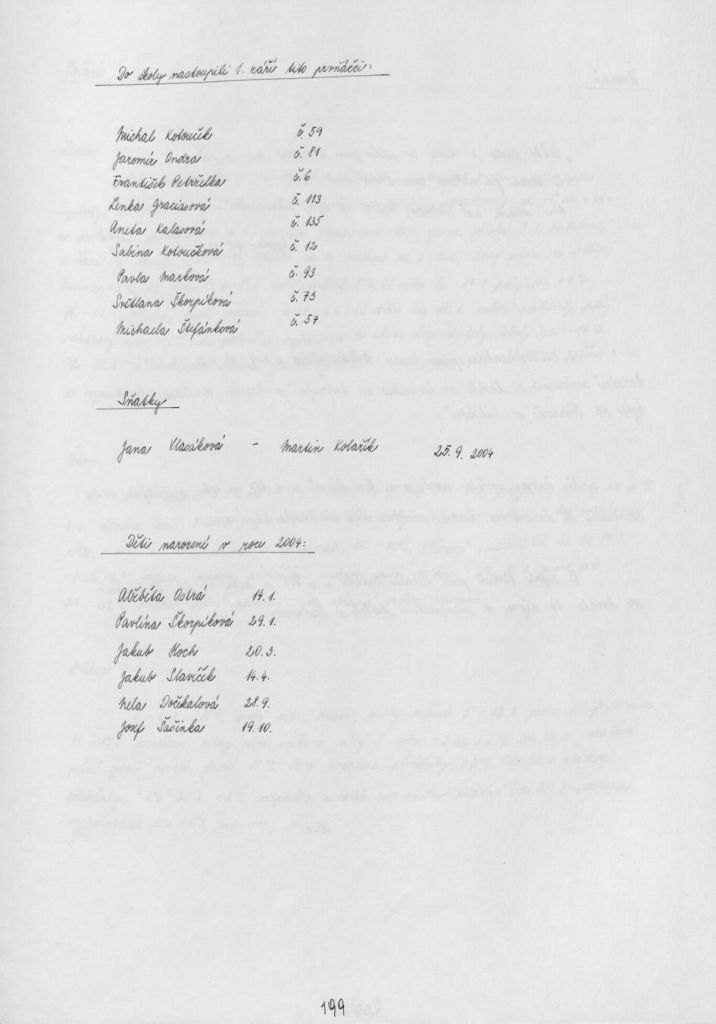 Do školy nastoupili 1. září tito prvňáčci:
Michal Kotouček č. 59
Jaromír Ondra č. 81
František Petržilka č. 6
Lenka Graciasová č. 113
Aneta Kalasová č. 135
Sabina Kotoučková č. 12
Pavla Marková č. 93
Světlana Škorpíková č. 73
Michaela Štefánková č. 57
Sňatky
Jana Vlasáková - Martin Kolařík 25. 9. 2004
Děti narozené v roce 2004:
Alžběta Ostrá 14. 1.
Pavlína Škorpíková 29. 1.
Jakub Hoch 20. 3.
Jakub Slavíček 14. 4.
Nela Dočkalová 28. 9.
Josef Šašinka 19. 10.
199